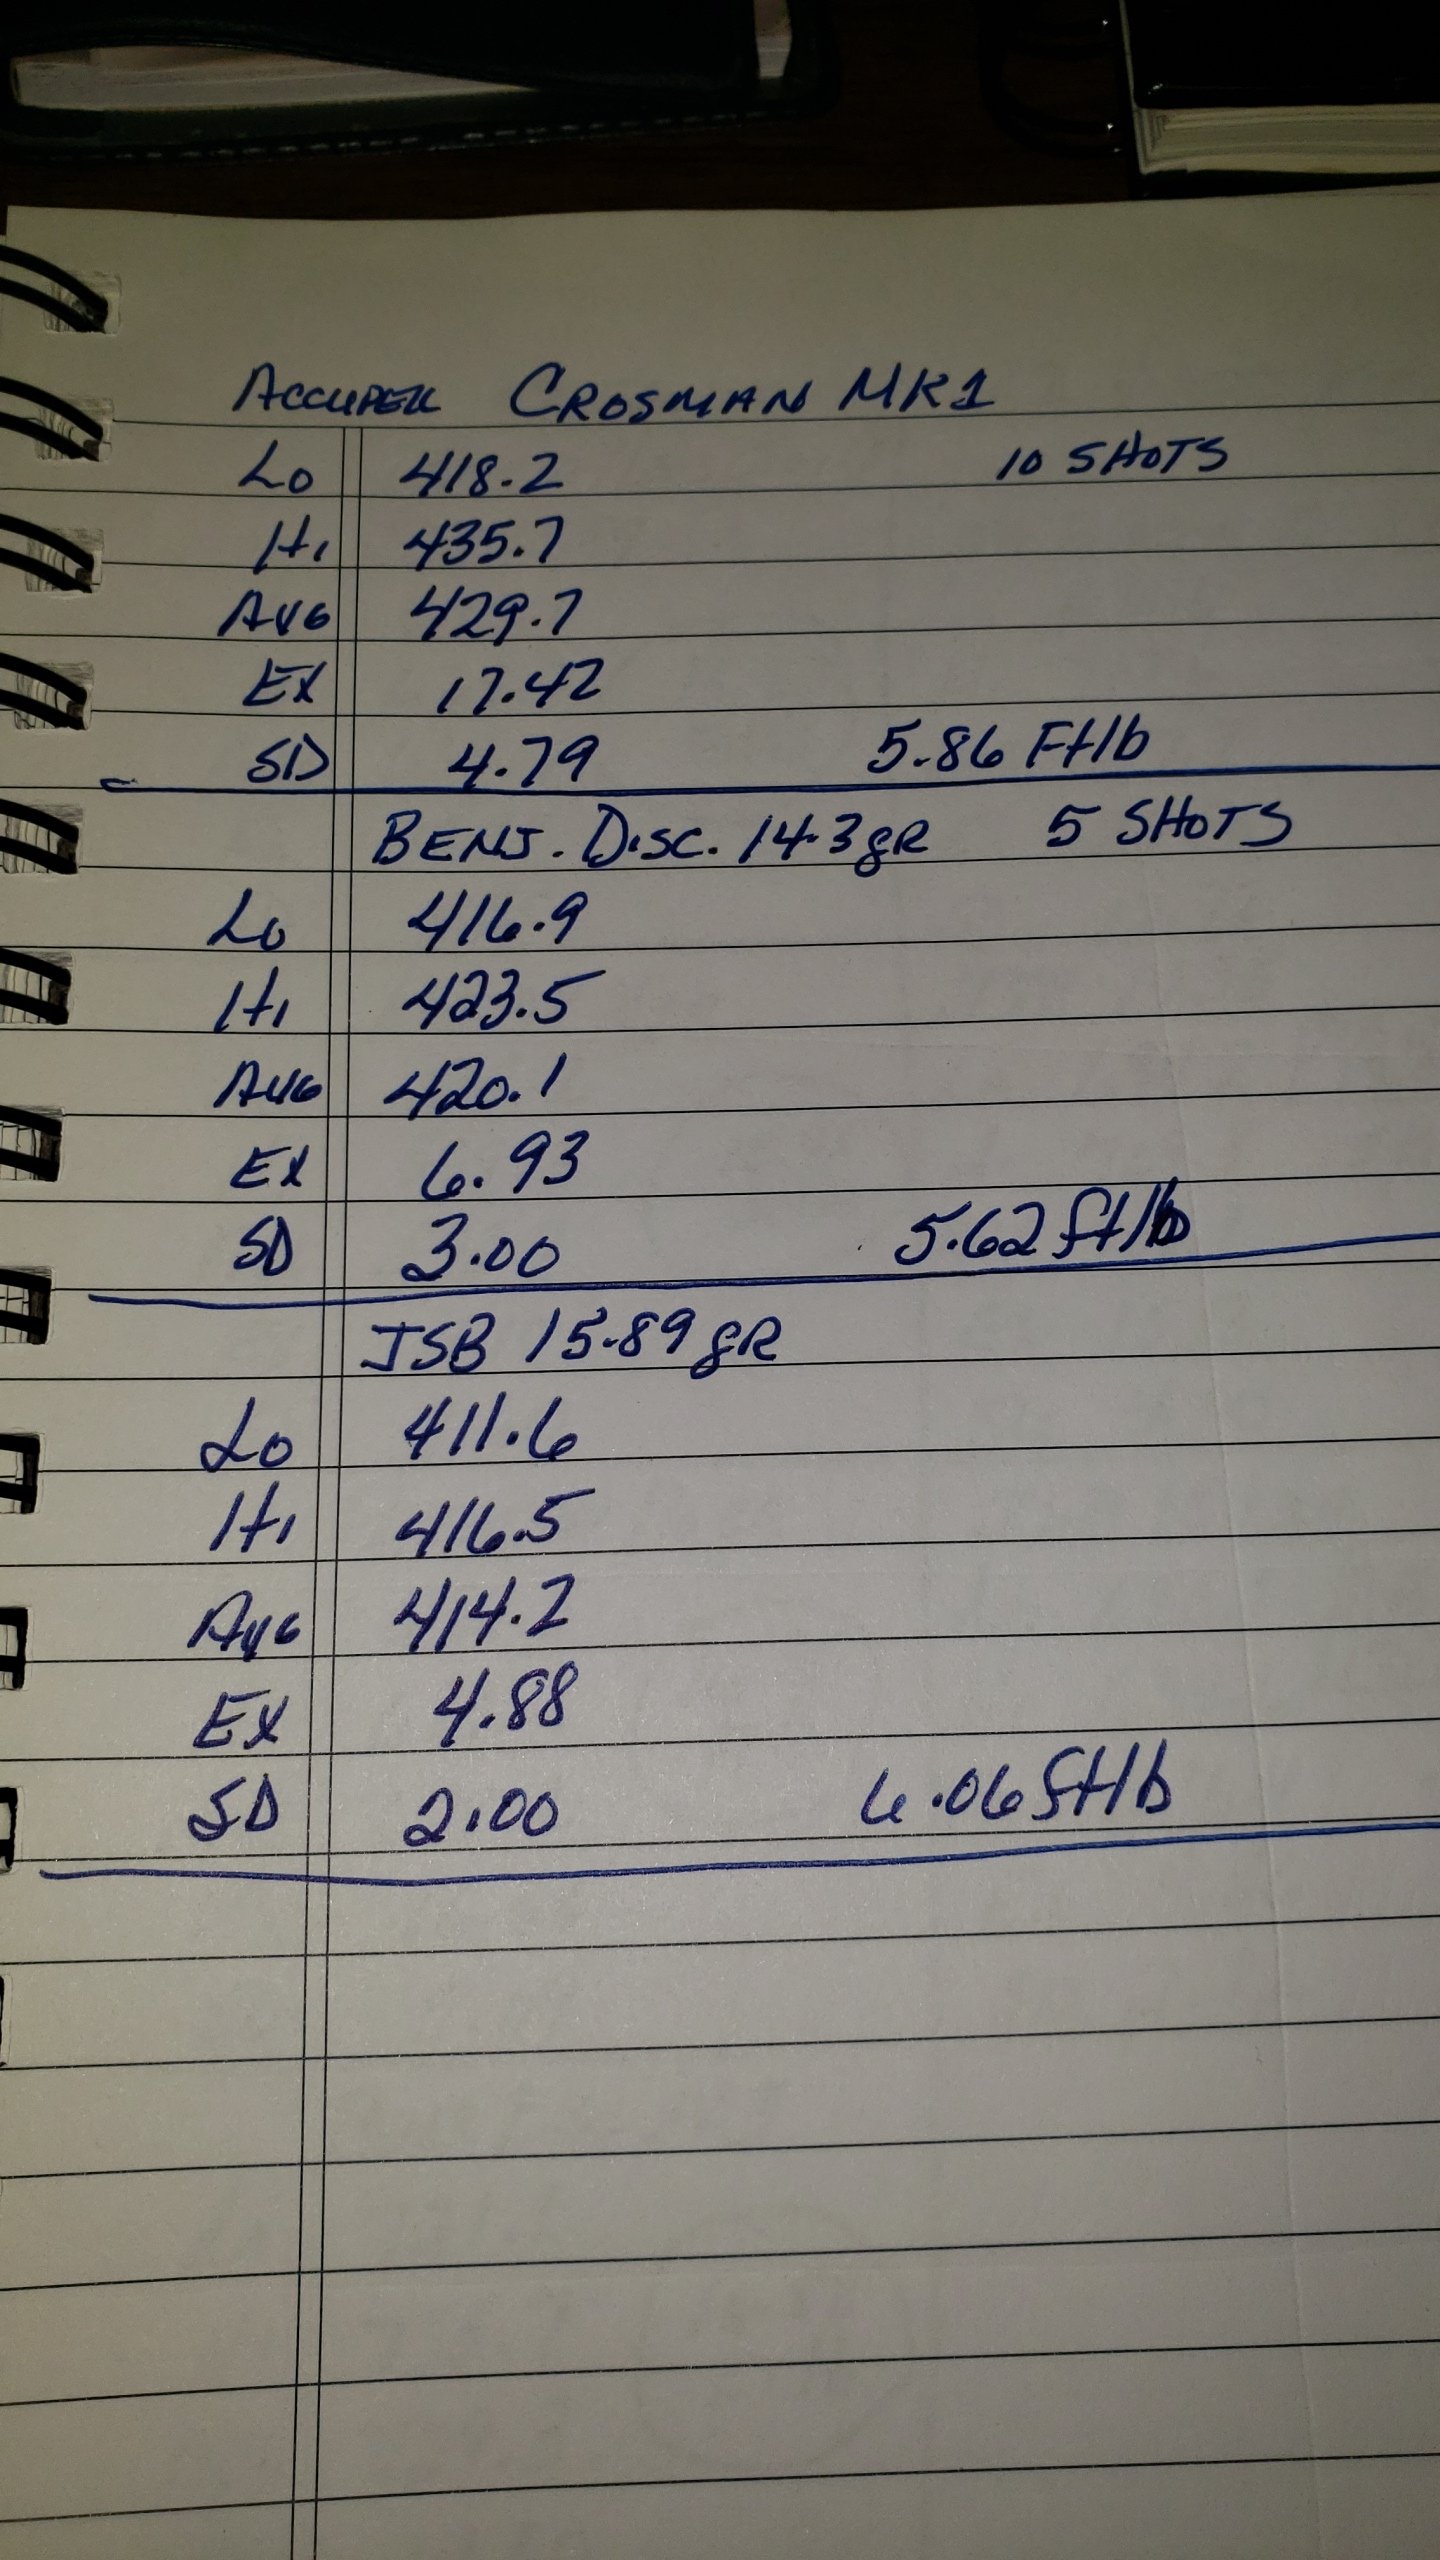 ACCUPELL CROSMAN MK1
Lo 418.2 10 SHOTS
Hi 435.7
AVG 429.7
EX 17.42
SD 4.79 5.86 Ftlb
BENJ. DISC. 14.3gR 5 SHOTS
Lo 416.9
Hi 423.5
AVG 420.1
EX 6.93
SD 3.00 5.62 ftlb
JSB 15.89 gR
Lo 411.6
Hi 416.5
AVG 414.2
EX 4.88
SD 2.00 6.06 ftlb